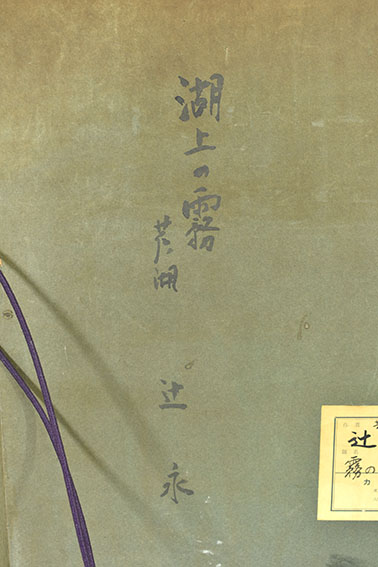 湖上の霧
芦ノ湖
辻永
辻
霧の
カ